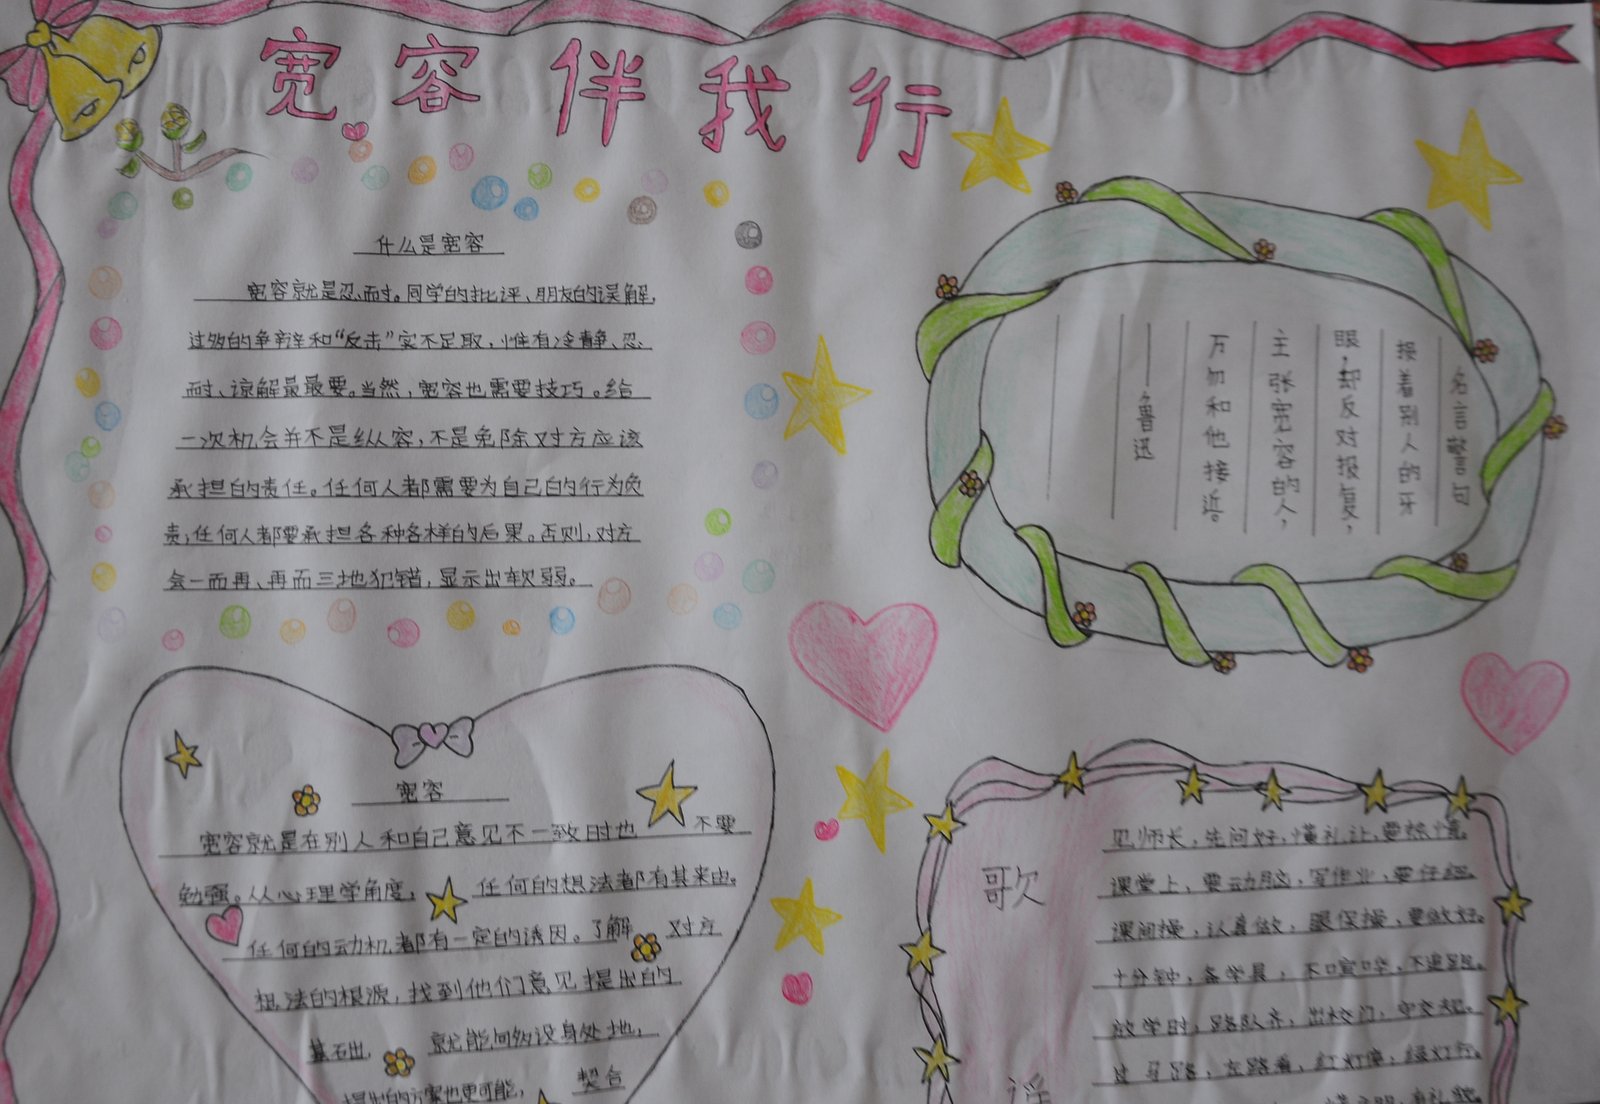 宽容伴我行
什么是宽容
宽容就是忍耐。同学的批评、朋友的误解,
过多的争辩和“反击”实不足取,惟有冷静、忍
耐、谅解最最要。当然,宽容也需要技巧。给
一次机会并不是纵容,不是免除对方应该
承担的责任。任何人都需要为自己的行为负
责,任何人都要承担各种各样的后果。否则,对方
会一而再、再而三地犯错,显示出软弱。
名言警句
损着别人的牙
眼,却反对报复,
主张宽容的人,
万勿和他接近。
——鲁迅
宽容
宽容就是在别人和自己意见不一致时也 不要
勉强。从心理学角度, 任何的想法都有其来由。
任何的动机都有一定的诱因。了解 对方
想法的根源,找到他们意见提出的
基石出, 就能够设身处地,
提出的方案也更可能, 契合
歌 谣
见师长,先问好,懂礼让,要热情。
课堂上,要动脑,写作业,要仔细。
课间操,认真做,眼保操,要做好。
十分钟,备学具,不喧哗,不追跑。
放学时,路队齐,出校门,守交规。
过马路,左路看,红灯停,绿灯行。